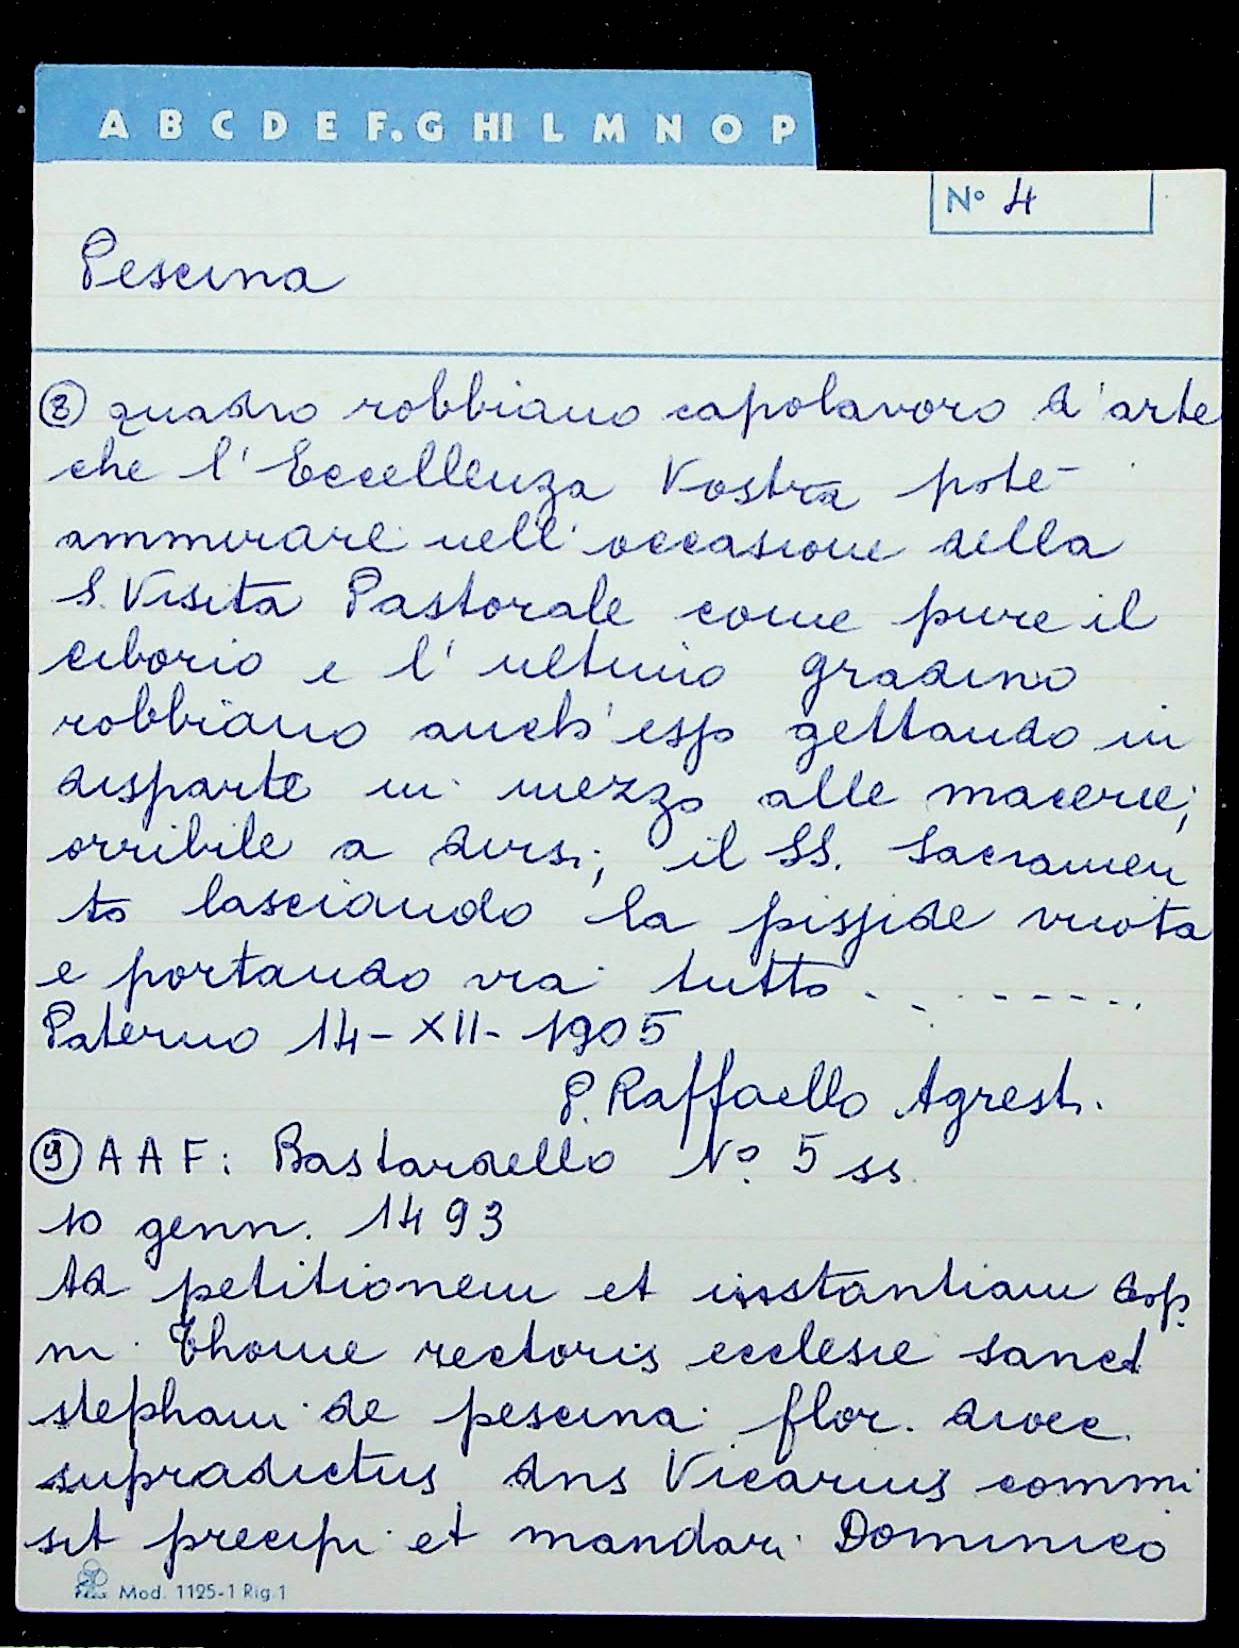 A B C D E F. G HI L M N O P
N° 4
Pescina
⑧ quadro robbiano capolavoro d'arte
che l'Eccellenza Vostra poté
ammirare nell'occasione della
S. Visita Pastorale come pure il
ciborio e l'ultimo gradino
robbiano anch'esso gettando in
disparte in mezzo alle macerie;
orribile a dirsi; il SS. Sacramen
to lasciando la pisside vuota
e portando via tutto - - - - - - - -
Paterno 14-XII-1905
P. Raffaello Agresti.
⑨ A A F: Bastardello N° 5 ss.
10 genn. 1493
Ad petitionem et instantiam dop.
m. Thome rectoris ecclesie sancti
stephani de pescina flor. dioec.
supradictus dns Vicarius commi
sit precipi et mandari Dominico
Mod. 1125-1 Rig.1